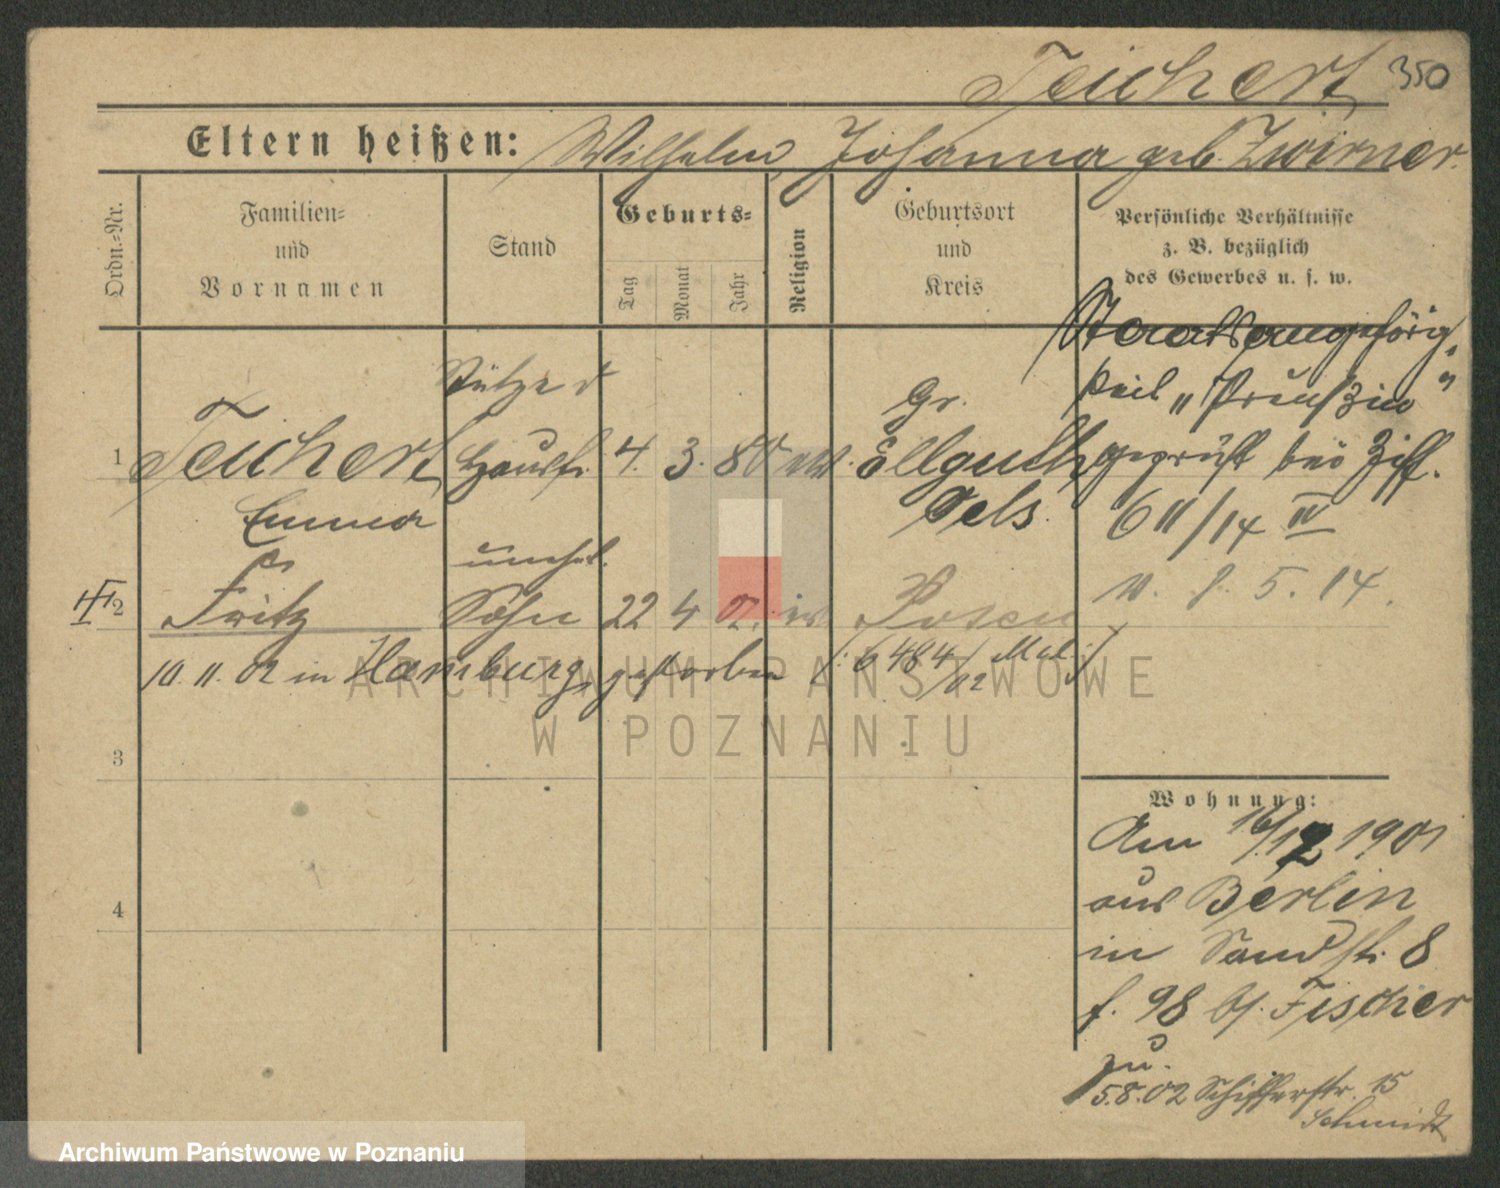 Teichert 350
Eltern heißen: Wilhelm, Johanna geb. Zwirner.
Ordn.-Nr.
Familien-
und
Vornamen
Stand
Geburts-
Tag
Monat
Jahr
Religion
Geburtsort
und
Kreis
Persönliche Verhältnisse
z. B. bezüglich
des Gewerbes u. s. w.
Staatsangehörig-
keit „Preußin"
geprüft bei Ziff.
611/14 IV
5. 14.
Stütze d
Gr.
1 Teichert Hausfr. 4. 3. 80 Ellguth
Emma Oels.
unehel.
2 Fritz Sohn 22 4 02. Posen
10. 11. 02 in Hamburg gestorben (: 6484/02 Mel. :)
ARCHIWUM PAŃSTWOWE
W POZNANIU
3
4
Wohnung:
Am 16/12 1901
aus Berlin
in Sandstr. 8
f. 98 bj. Fischer
zu.
5.8.02 Schifferstr. 15
Schmidt
Archiwum Państwowe w Poznaniu